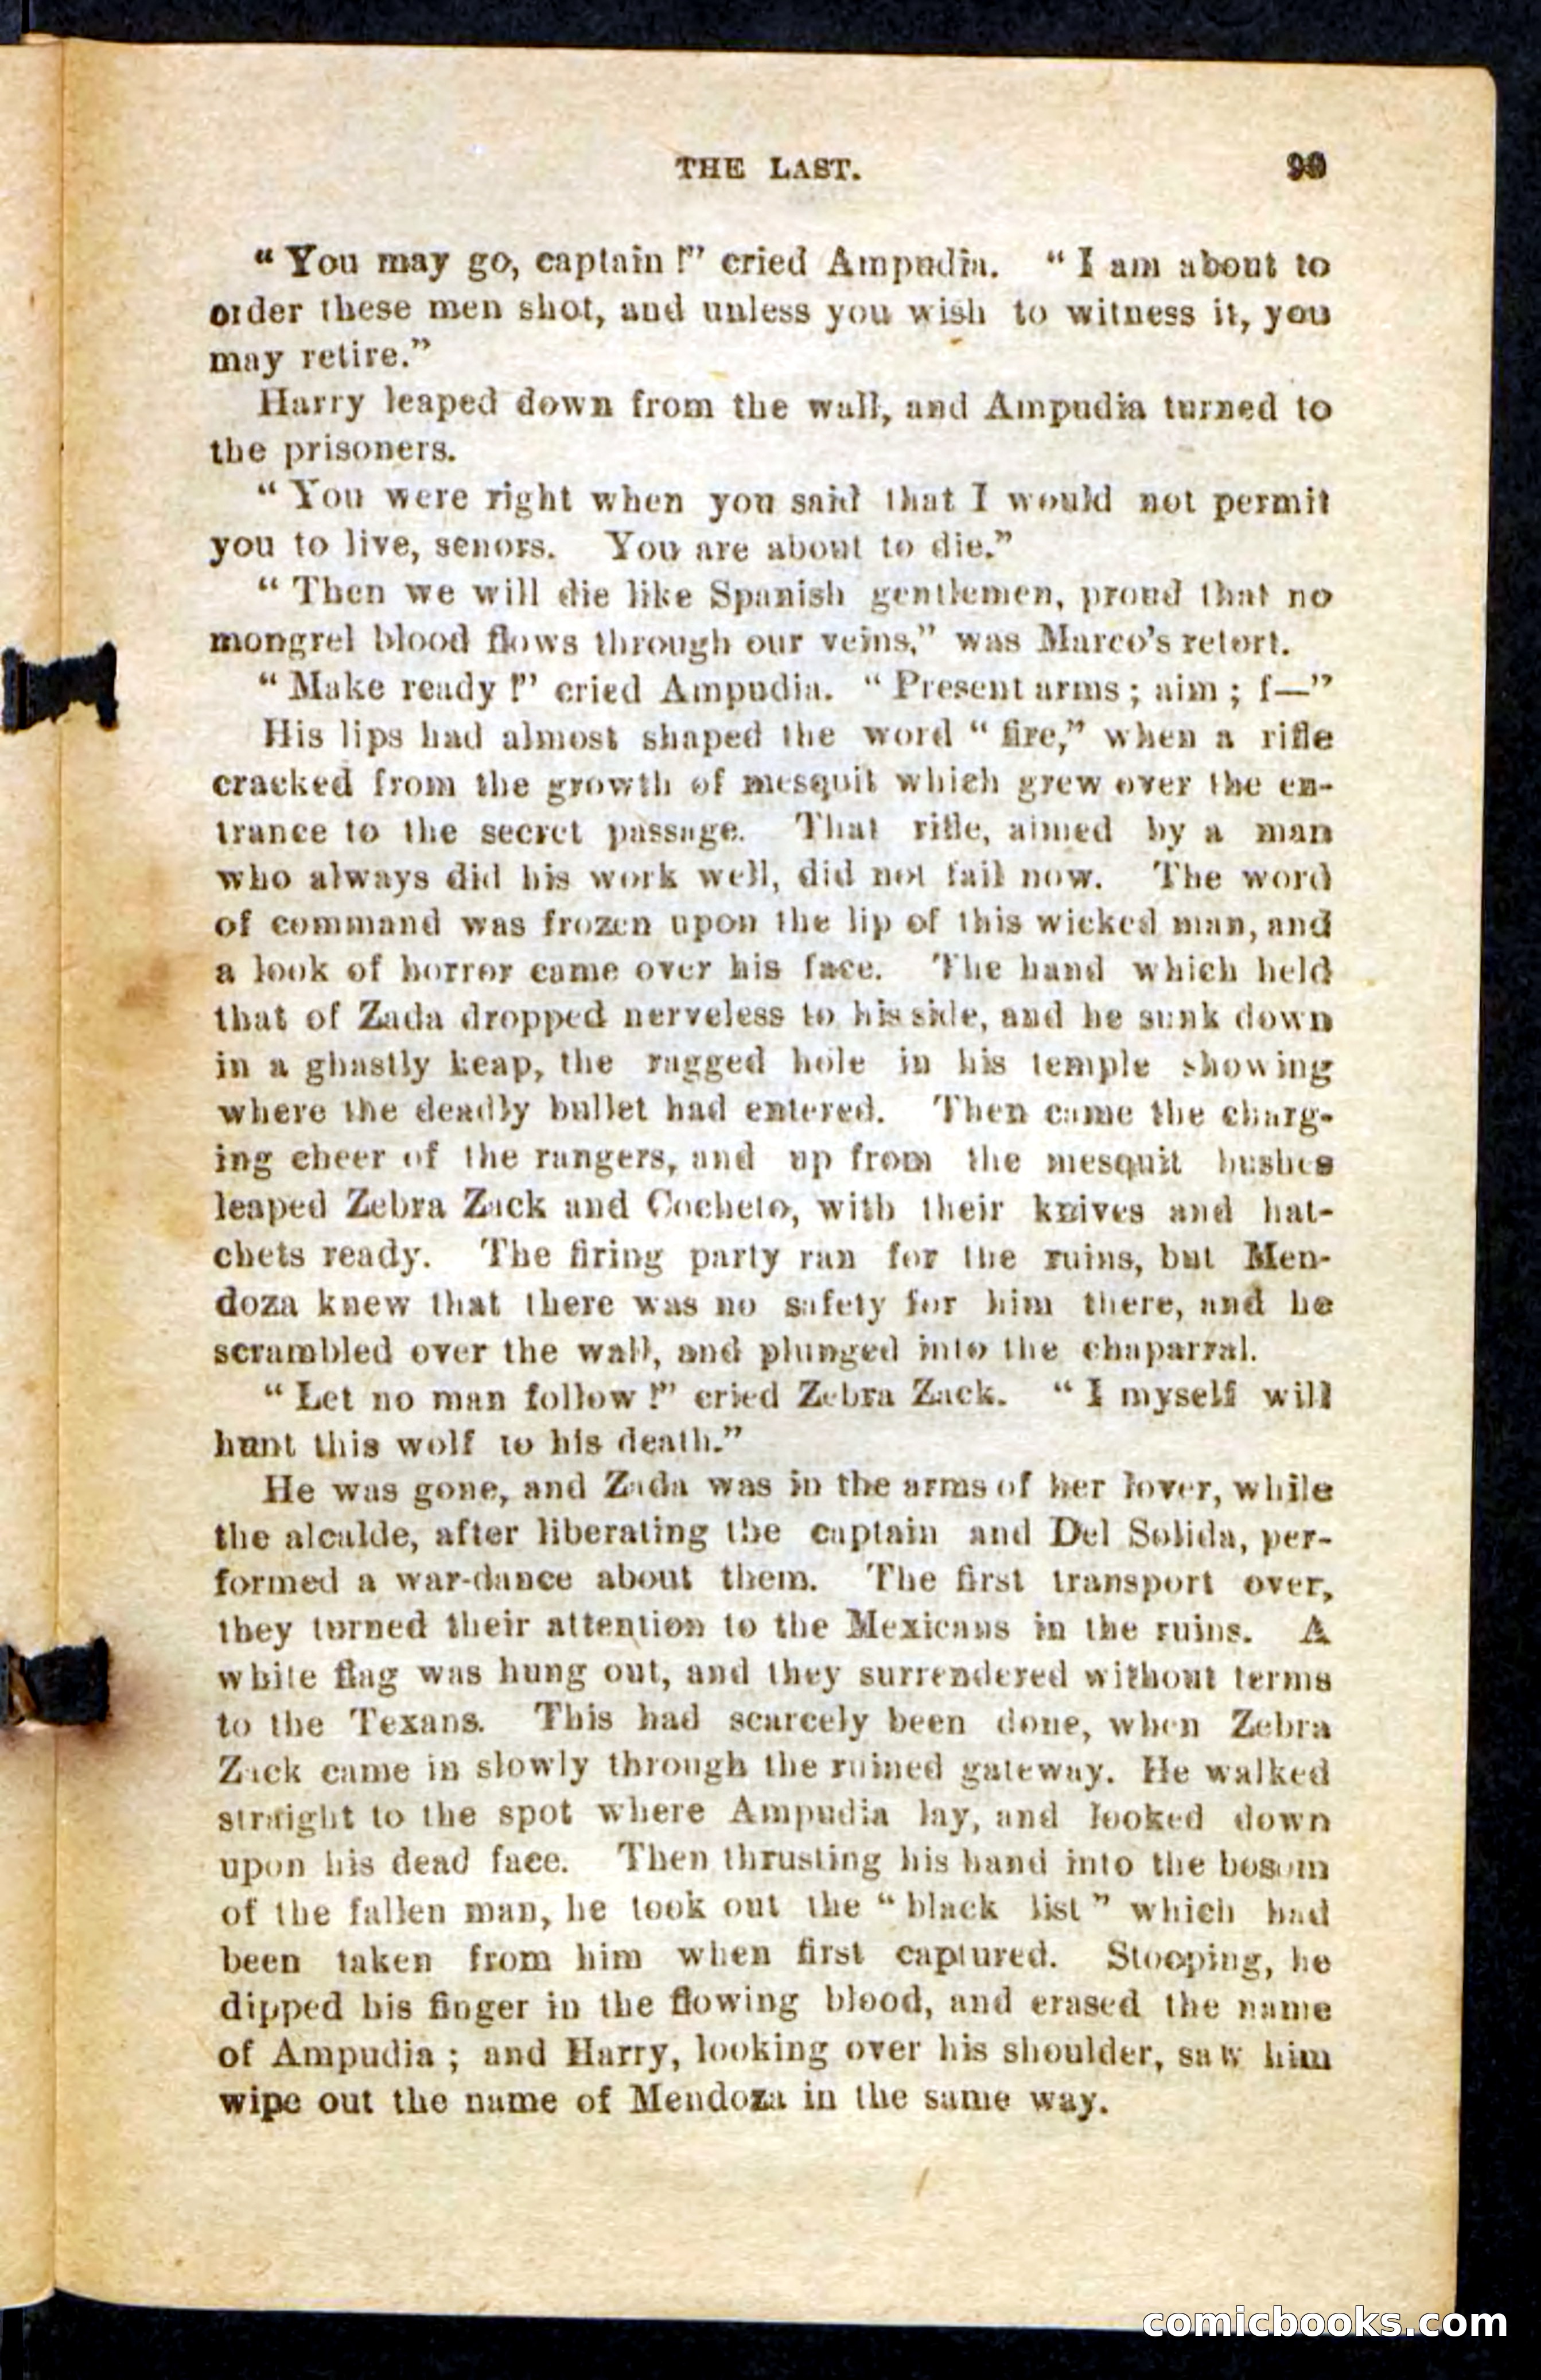 THE LAST. 99
“ You may go, captain !” cried Ampudia. “ I am about to
order these men shot, and unless you wish to witness it, you
may retire.”
Harry leaped down from the wall, and Ampudia turned to
the prisoners.
“ You were right when you said that I would not permit
you to live, senors. You are about to die.”
“ Then we will die like Spanish gentlemen, proud that no
mongrel blood flows through our veins,” was Marco’s retort.
“ Make ready !” cried Ampudia. “ Present arms ; aim ; f—”
His lips had almost shaped the word “ fire,” when a rifle
cracked from the growth of mesquit which grew over the en-
trance to the secret passage. That rifle, aimed by a man
who always did his work well, did not fail now. The word
of command was frozen upon the lip of this wicked man, and
a look of horror came over his face. The hand which held
that of Zada dropped nerveless to his side, and he sunk down
in a ghastly heap, the ragged hole in his temple showing
where the deadly bullet had entered. Then came the charg-
ing cheer of the rangers, and up from the mesquit bushes
leaped Zebra Zack and Cocheto, with their knives and hat-
chets ready. The firing party ran for the ruins, but Men-
doza knew that there was no safety for him there, and he
scrambled over the wall, and plunged into the chaparral.
“ Let no man follow !” cried Zebra Zack. “ I myself will
hunt this wolf to his death.”
He was gone, and Zada was in the arms of her lover, while
the alcalde, after liberating the captain and Del Solida, per-
formed a war-dance about them. The first transport over,
they turned their attention to the Mexicans in the ruins. A
white flag was hung out, and they surrendered without terms
to the Texans. This had scarcely been done, when Zebra
Zack came in slowly through the ruined gateway. He walked
straight to the spot where Ampudia lay, and looked down
upon his dead face. Then thrusting his hand into the bosom
of the fallen man, he took out the “ black list ” which had
been taken from him when first captured. Stooping, he
dipped his finger in the flowing blood, and erased the name
of Ampudia ; and Harry, looking over his shoulder, saw him
wipe out the name of Mendoza in the same way.
comicbooks.com